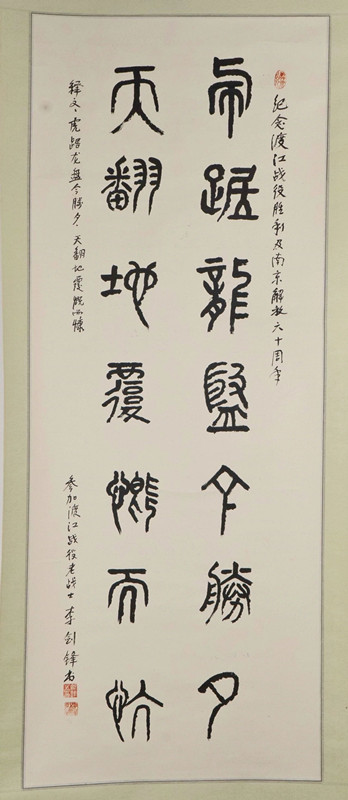 纪念渡江战役胜利及南京解放六十周年
虎踞龍盤今勝夕
天翻地覆慨而忼
释文：虎踞龙盘今胜夕，天翻地覆慨而慷
参加渡江战役老战士李剑锋书